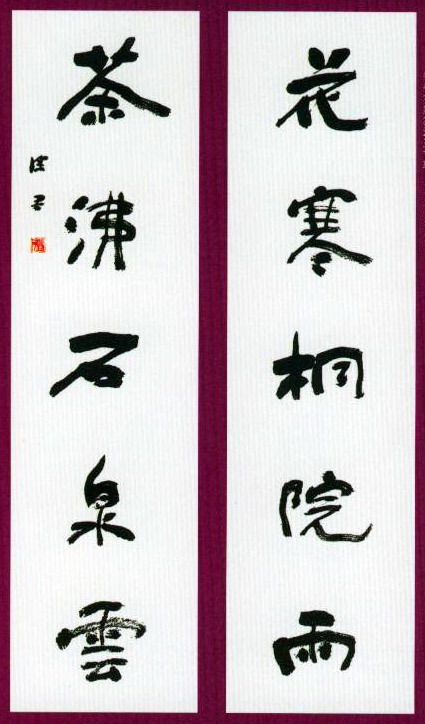 花寒桐院雨
茶沸石泉雲